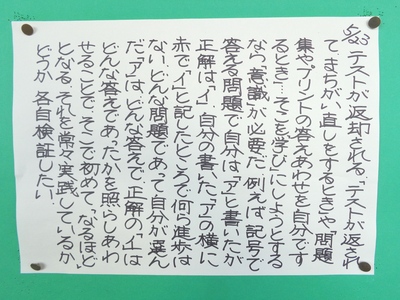 5/23 テストが返却される。「テストが返され
てまちがい直しをするとき」や、「問題
集やプリントの答えあわせを自分です
るとき」…そこを「学び」にしようとする
なら、意識が必要だ。例えば記号で
答える問題で自分は「ア」と書いたが
正解は「イ」。自分の書いた「ア」の横に
赤で「イ」と記したところで何ら進歩は
ない。どんな問題であって自分が選ん
だ「ア」は、どんな答えで、正解の「イ」は
どんな答えであったかを照らしあわ
せることで、そこで初めて、「なるほど」
となる。それを常々実践しているか、
どうか、各自検証したい。